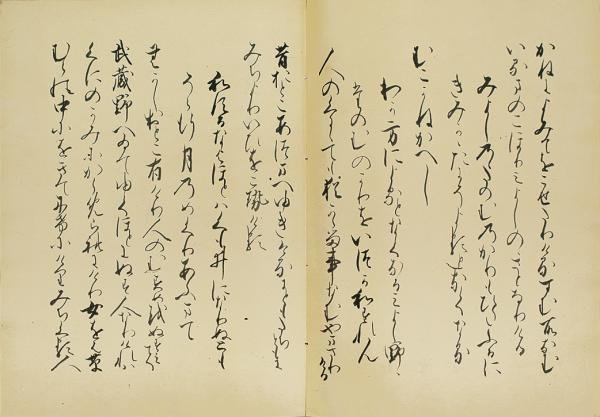 かねによみてをこせたりけるすむ所なむ
いるまのこほりみよしのゝさとなりける
みよしのゝたのむのかりもひたふるに
きみかかたにそよるとなくなる
むこかねかへし
わか方によるとなくなるみよし野ゝ
たのむのかりをいつかわすれん
人のくにゝても猶かゝる事なむやまさりける
昔おとこあつまへゆきけるにともたちともに
みちよりいひをこせける
わするなよほとは雲井になりぬとも
そら行月のめくりあふまて
むかしおとこ有けり人のむすめをぬすみて
武蔵野へゐてゆくほとにぬす人なりけれは
くにのかみにからめられにけり女をは草
むらの中にをきてにけにけりみちくる人